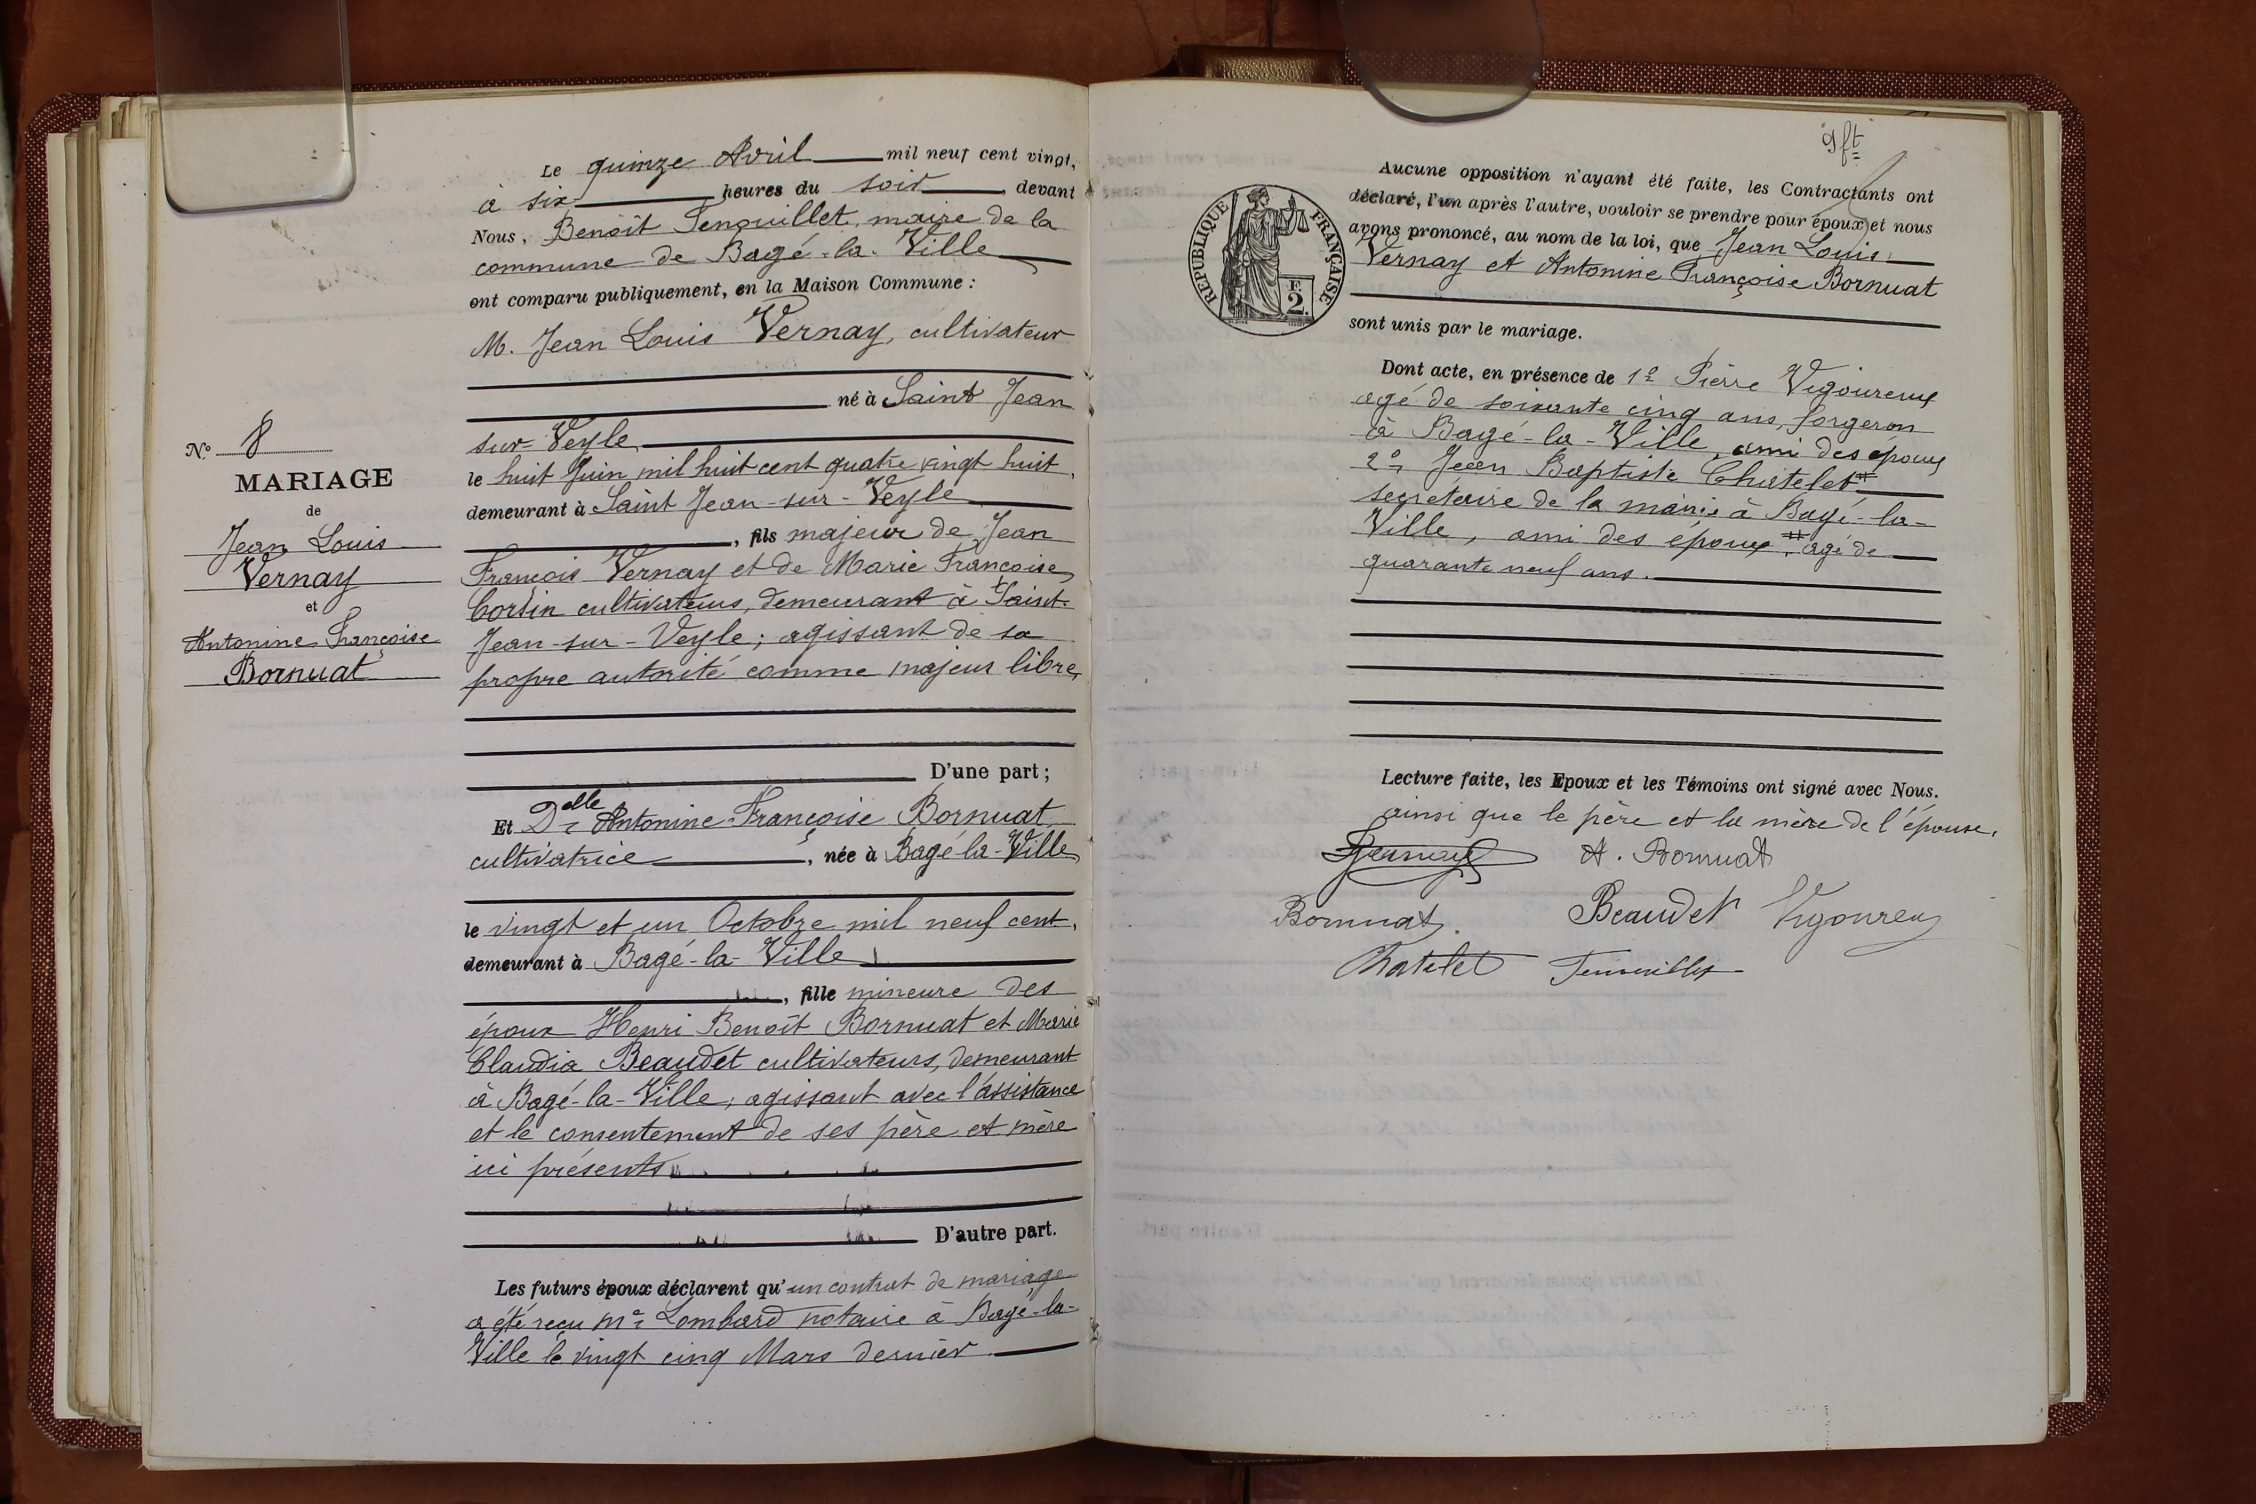 Le quinze Avril mil neuf cent vingt,
à six heures du soir, devant
Nous, Benoît Tenouillet, maire de la
commune de Bagé-la-Ville
ont comparu publiquement, en la Maison Commune :
M. Jean Louis Vernay, cultivateur
né à Saint Jean
sur-Veyle
le huit Juin mil huit cent quatre vingt huit,
demeurant à Saint Jean-sur-Veyle
, fils majeur de Jean
François Vernay et de Marie Françoise
Corsin cultivateurs, demeurant à Saint-
Jean-sur-Veyle ; agissant de sa
propre autorité comme majeur libre,
D'une part ;
Et Delle Antonine Françoise Bornuat
cultivatrice, née à Bagé-la-Ville
le vingt et un Octobre mil neuf cent,
demeurant à Bagé-la-Ville
, fille mineure des
époux Henri Benoît Bornuat et Marie
Claudia Beaudet cultivateurs, demeurant
à Bagé-la-Ville, agissant avec l'assistance
et le consentement de ses père et mère
ici présents
D'autre part.
Les futurs époux déclarent qu'un contrat de mariage
a été reçu Me Lombard notaire à Bagé-la-
Ville le vingt cinq Mars dernier.
No 8
MARIAGE
de
Jean Louis
Vernay
et
Antonine Françoise
Bornuat
9 ft
RÉPUBLIQUE FRANÇAISE
F.
2.
Aucune opposition n'ayant été faite, les Contractants ont
déclaré, l'un après l'autre, vouloir se prendre pour époux et nous
avons prononcé, au nom de la loi, que Jean Louis
Vernay et Antonine Françoise Bornuat
sont unis par le mariage.
Dont acte, en présence de 1º Pierre Vigoureux
agé de soixante cinq ans, forgeron
à Bagé-la-Ville, ami des époux
2º, Jean Baptiste Chatelet #
secrétaire de la mairie à Bagé-la-
Ville, ami des époux, # agé de
quarante neuf ans.
Lecture faite, les Epoux et les Témoins ont signé avec Nous.
ainsi que le père et la mère de l'épouse.
Vernay A. Bornuat
Bornuat. Beaudet Vigoureux
Chatelet Tenouillet